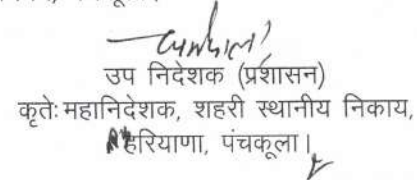 उप निदेशक (प्रशासन)
कृतेः महानिदेशक, शहरी स्थानीय निकाय,
हरियाणा, पंचकूला।